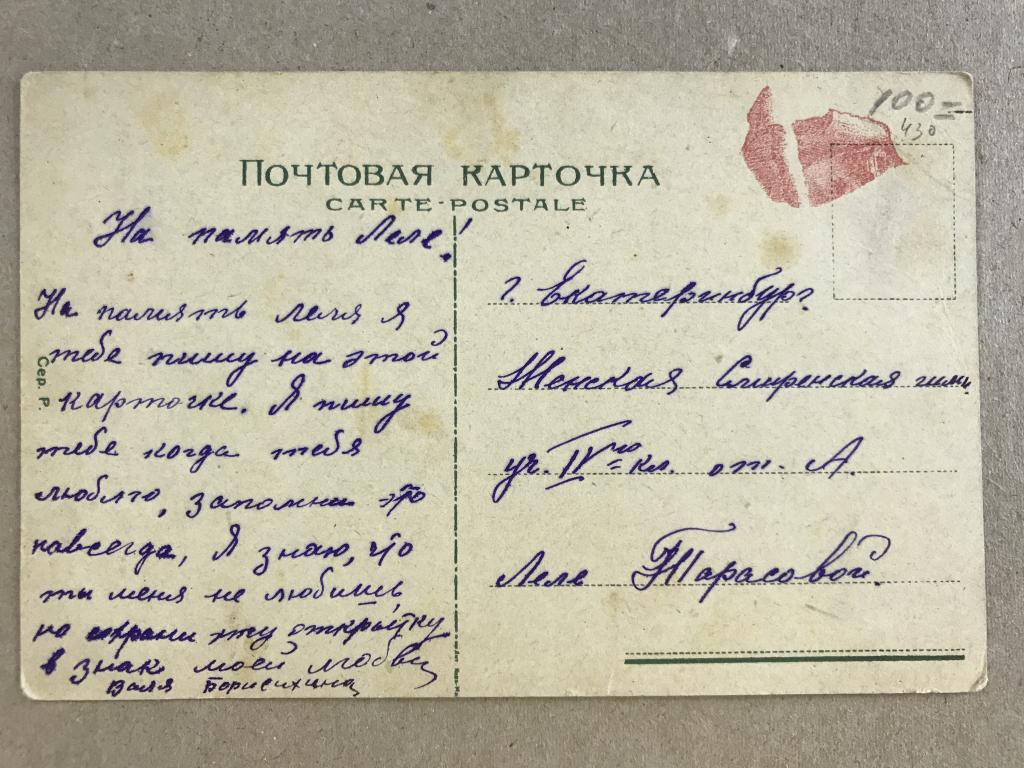 100=
430
ПОЧТОВАЯ КАРТОЧКА
CARTE-POSTALE
На память Леле!
На память Леля я
тебе пишу на этой
карточке. Я пишу
тебе когда тебя
люблю, запомни это
навсегда, Я знаю, что
ты меня не любишь,
но храни эту открытку
в знак моей любви
Валя Борисихина
Сер. Р.
г. Екатеринбург.
Женская гимн.
уч. IV го кл. от. А.
Леле Тарасовой.